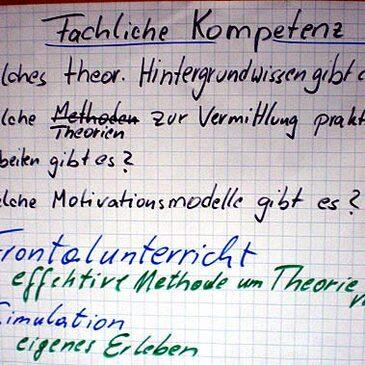 Fachliche Kompetenz
elches theor. Hintergrundwissen gibt e
elche Methoden zur Vermittlung prakt
Theorien
beiten gibt es?
elche Motivationsmodelle gibt es?
Frontalunterricht
effektive Methode um Theorie
Simulation
eigenes Erleben